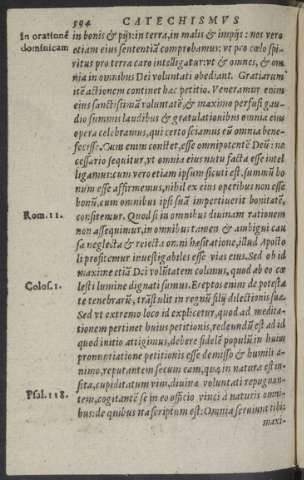 594 CATECHISMVS
In orationē
dominicam
in bonis & pijs: in terra, in malis & impijs: nos vero
etiam eius sententiā comprobamus: vt pro cœlo spi-
ritus pro terra caro intelligatur: vt & omnes, & om
nia in omnibus Dei voluntati obediant. Gratiarum
itē actionem continet hæc petitio. Veneramur enim
eius sanctissimā voluntatē, & maximo perfusi gau-
dio summis laudibus & gratulationibus omnia eius
opera celebramus, qui certo sciamus eū omnia bene-
fecisse. Cum enim constet, esse omnipotentē Deū: ne
cessario sequitur, vt omnia eius nutu facta esse intel
ligamus: cum vero etiam ipsum sicuti est, summū bo
num esse affirmemus, nihil ex eius operibus non esse
bonū, cum omnibus ipse suā impertiuerit bonitatē,
Rom. 11.
confitemur. Quod si in omnibus diuinam rationem
non assequimur, in omnibus tamen & ambigui cau
sa neglecta & reiecta omni hæsitatione, illud Aposto
li profitemur inuestigabiles esse vias eius. Sed ob id
maxime etiā Dei volūtatem colimus, quod ab eo cœ
Colos. 1.
lesti lumine dignati sumus. Ereptos enim de potesta
te tenebrarū, trāstulit in regnū filij dilectionis suæ.
Sed vt extremo loco id explicetur, quod ad medita-
tionem pertinet huius petitionis, redeundū est ad id
quod initio attigimus, debere fidelē populū in huius
pronuntiatione petitionis esse demisso & humili a-
nimo, reputantem secum eam, quæ in natura est in-
sita, cupiditatum vim, diuinæ voluntati repugnan-
Psal. 118.
tem, cogitantē se in eo officio vinci à naturis omni-
bus: de quibus ita scriptum est: Omnia seruiunt tibi:
maxi-